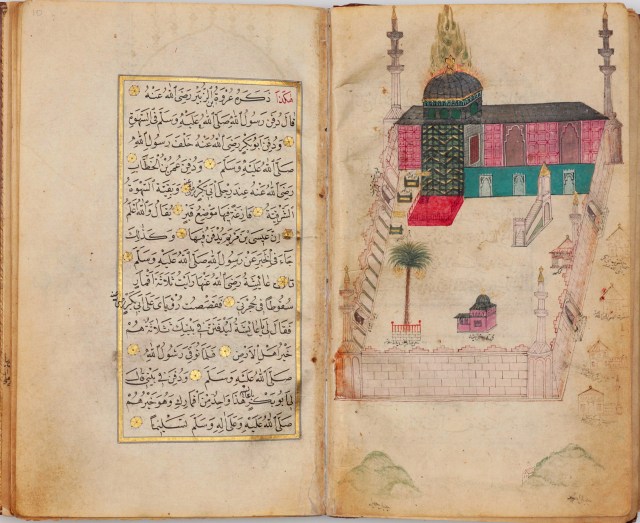 هكذا ذكره عروة ابن الزبير رضي الله عنه
قال دفن رسول الله صلى الله عليه وسلم في السهوة
ودفن ابو بكر رضي الله عنه خلف رسول الله
صلى الله عليه وسلم ودفن عمر بن الخطاب
رضي الله عنه عند رجلي ابي بكر وبقية السهوة
الشرقية فارغة فيها موضع قبر يقال والله اعلم
ان عيسى بن مريم يدفن فيها وكذلك
جاء في الخبر عن رسول الله صلى الله عليه وسلم
قالت عائشة رضي الله عنها رأيت ثلاثة اقمار
سقوطا في حجرتي فقصصت رؤياي على ابي بكر
فقال لي يا عائشة ليدفنن في بيتك ثلاثة هم
خير اهل الارض فلما توفي رسول الله
صلى الله عليه وسلم ودفن في بيتي قال
لي ابو بكر هذا واحد من اقمارك وهو خيرهم
صلى الله عليه وعلى اله وسلم تسليما